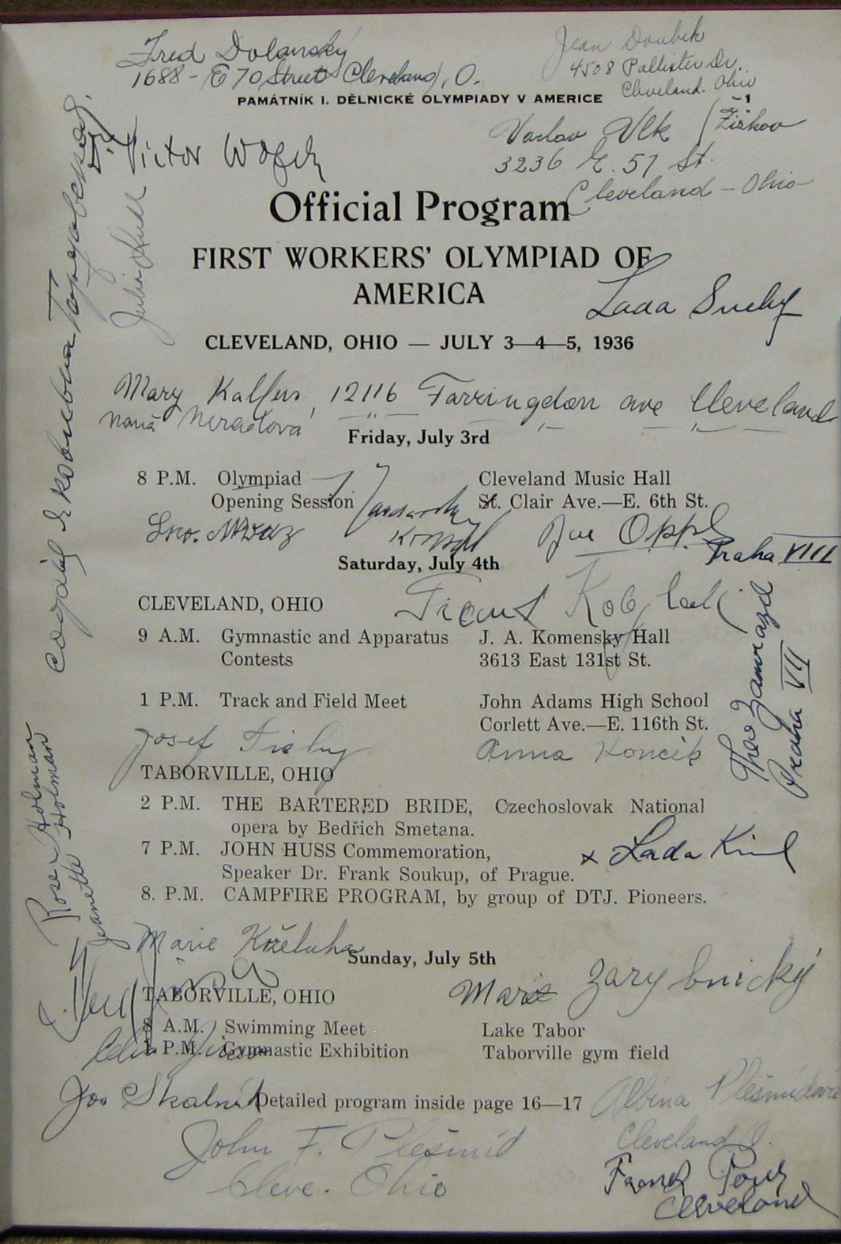 Fred Dolanský
1688 - E 70 Street Cleveland, O.
Jean Doubek
4508 Pallister Dr.
Cleveland. Ohio
PAMÁTNÍK I. DĚLNICKÉ OLYMPIADY V AMERICE
1
Vaclav Vlk
Žižkov
3236 E. 57 St.
Cleveland - Ohio
Dr. Victor
Official Program
FIRST WORKERS' OLYMPIAD OF
AMERICA
Lada
Julia
CLEVELAND, OHIO — JULY 3—4—5, 1936
Mary Kalfus, 12116 Farringdon ave Cleveland
Friday, July 3rd
8 P.M. Olympiad Cleveland Music Hall
Opening Session St. Clair Ave.—E. 6th St.
Joe Oppl
Praha VIII
Saturday, July 4th
CLEVELAND, OHIO
9 A.M. Gymnastic and Apparatus J. A. Komensky Hall
Contests 3613 East 131st St.
Theo
Praha VII
1 P.M. Track and Field Meet John Adams High School
Corlett Ave.—E. 116th St.
Josef
Anna Koncik
TABORVILLE, OHIO
2 P.M. THE BARTERED BRIDE, Czechoslovak National
opera by Bedřich Smetana.
7 P.M. JOHN HUSS Commemoration,
x Lada
Speaker Dr. Frank Soukup, of Prague.
8. P.M. CAMPFIRE PROGRAM, by group of DTJ. Pioneers.
Rose Holman
Jeanette Holman
Marie
Sunday, July 5th
TABORVILLE, OHIO
Marie Zarybnický
8 A.M. Swimming Meet Lake Tabor
P.M. Gymnastic Exhibition Taborville gym field
Joe Skalník
Detailed program inside page 16—17
Albina Plesmidova
Cleveland O.
John F. Plesmid
Cleve. Ohio
Cleveland